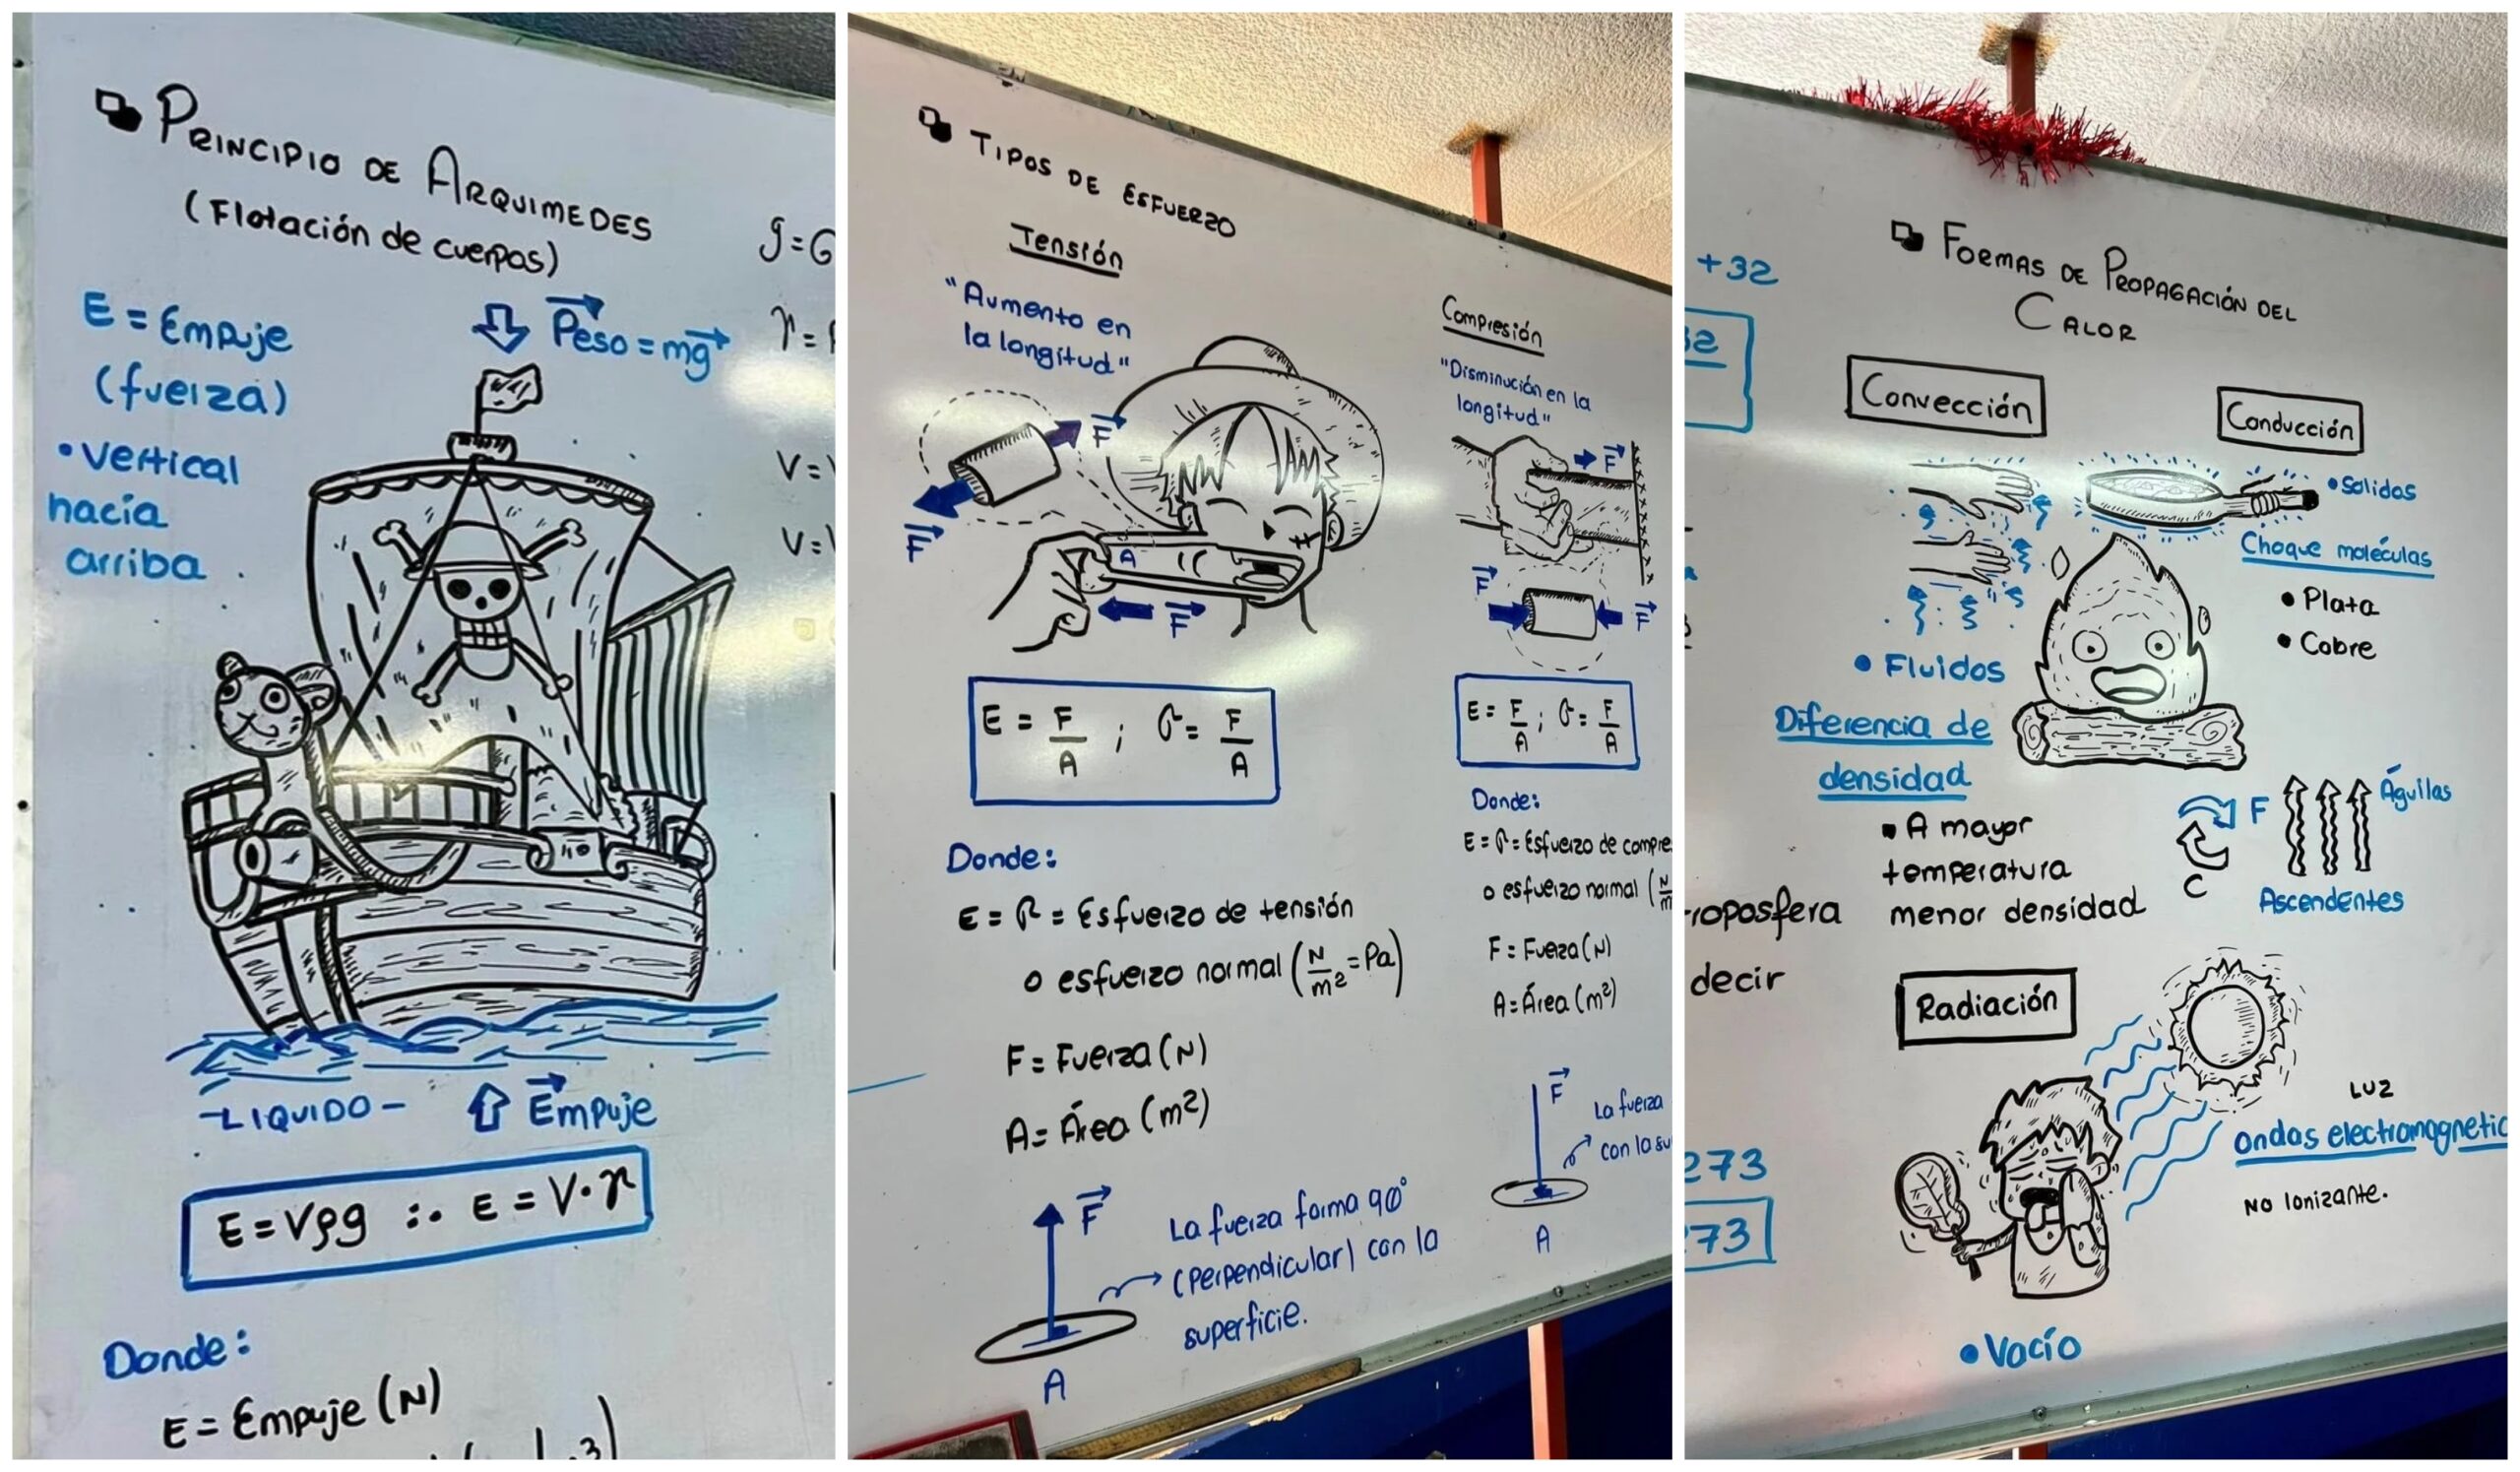 PRINCIPIO DE ARQUIMEDES
(Flotación de cuerpos)
E = Empuje
(fuerza)
• Vertical
hacia
arriba
Peso = mg
g = G
γ =
V =
V =
-LIQUIDO-
Empuje
E = Vρg ∴ E = V·γ
Donde:
E = Empuje (N)
TIPOS DE ESFUERZO
Tensión
"Aumento en
la longitud"
F
F
A
F
E = F/A ; σ = F/A
Donde:
E = σ = Esfuerzo de tensión
o esfuerzo normal (N/m² = Pa)
F = Fuerza (N)
A = Área (m²)
F
La fuerza forma 90°
(perpendicular) con la
superficie.
A
Compresión
"Disminución en la
longitud"
F
F
F
E = F/A ; σ = F/A
Donde:
E = σ = Esfuerzo de compre
o esfuerzo normal (N/m
F = Fuerza (N)
A = Área (m²)
F
La fuerza
con la su
A
+32
32
roposfera
decir
273
273
FORMAS DE PROPAGACIÓN DEL
CALOR
Convección
• Fluidos
Diferencia de
densidad
▪ A mayor
temperatura
menor densidad
Conducción
• Solidos
Choque moléculas
• Plata
• Cobre
F
C
Águilas
Ascendentes
Radiación
LUZ
ondas electromagnetic
No Ionizante.
• Vacío